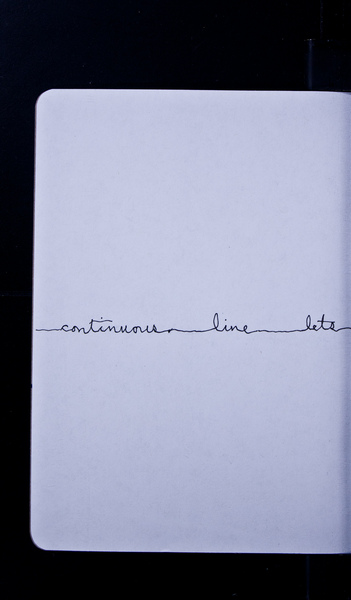 continuous line lets